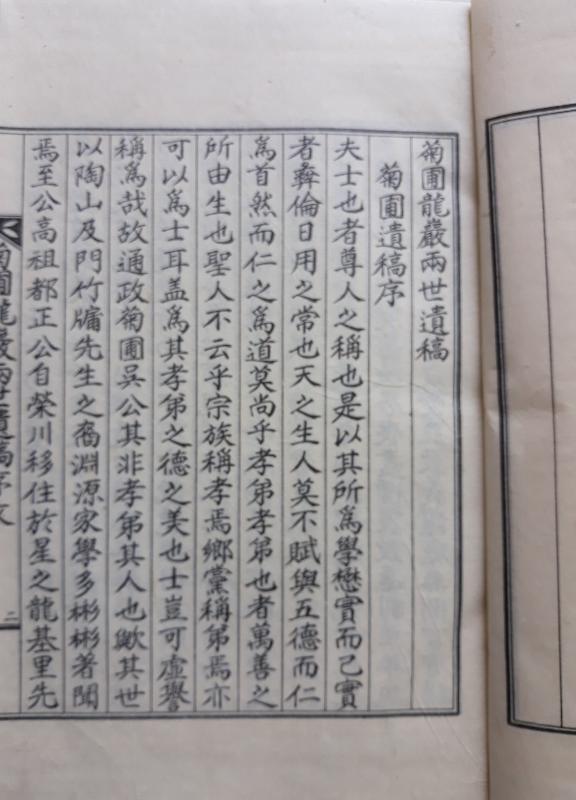 菊圃龍巖兩世遺稿
菊圃遺稿序
夫士也者尊人之稱也是以其所爲學懋實而已實
者彛倫日用之常也天之生人莫不賦與五德而仁
爲首然而仁之爲道莫尚乎孝弟孝弟也者萬善之
所由生也聖人不云乎宗族稱孝焉鄕黨稱弟焉亦
可以爲士耳盖爲其孝弟之德之美也士豈可虛譽
稱爲哉故通政菊圃吳公其非孝弟其人也歟其世
以陶山及門竹牖先生之裔淵源家學多彬彬著聞
焉至公高祖都正公自榮川移住於星之龍基里先
菊圃龍巖兩世遺稿序文
二